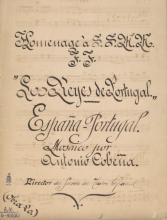 Homenage à S.S.M.M.
F.F.
"Los Reyes de Portugal."
España-Portugal.
Mosaico por
Antonio Cobeña.
Director